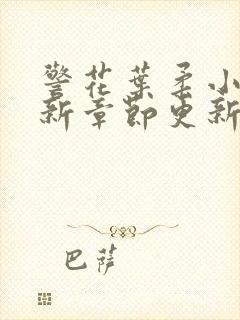 警花葉柔小
新章節更新
巴薩